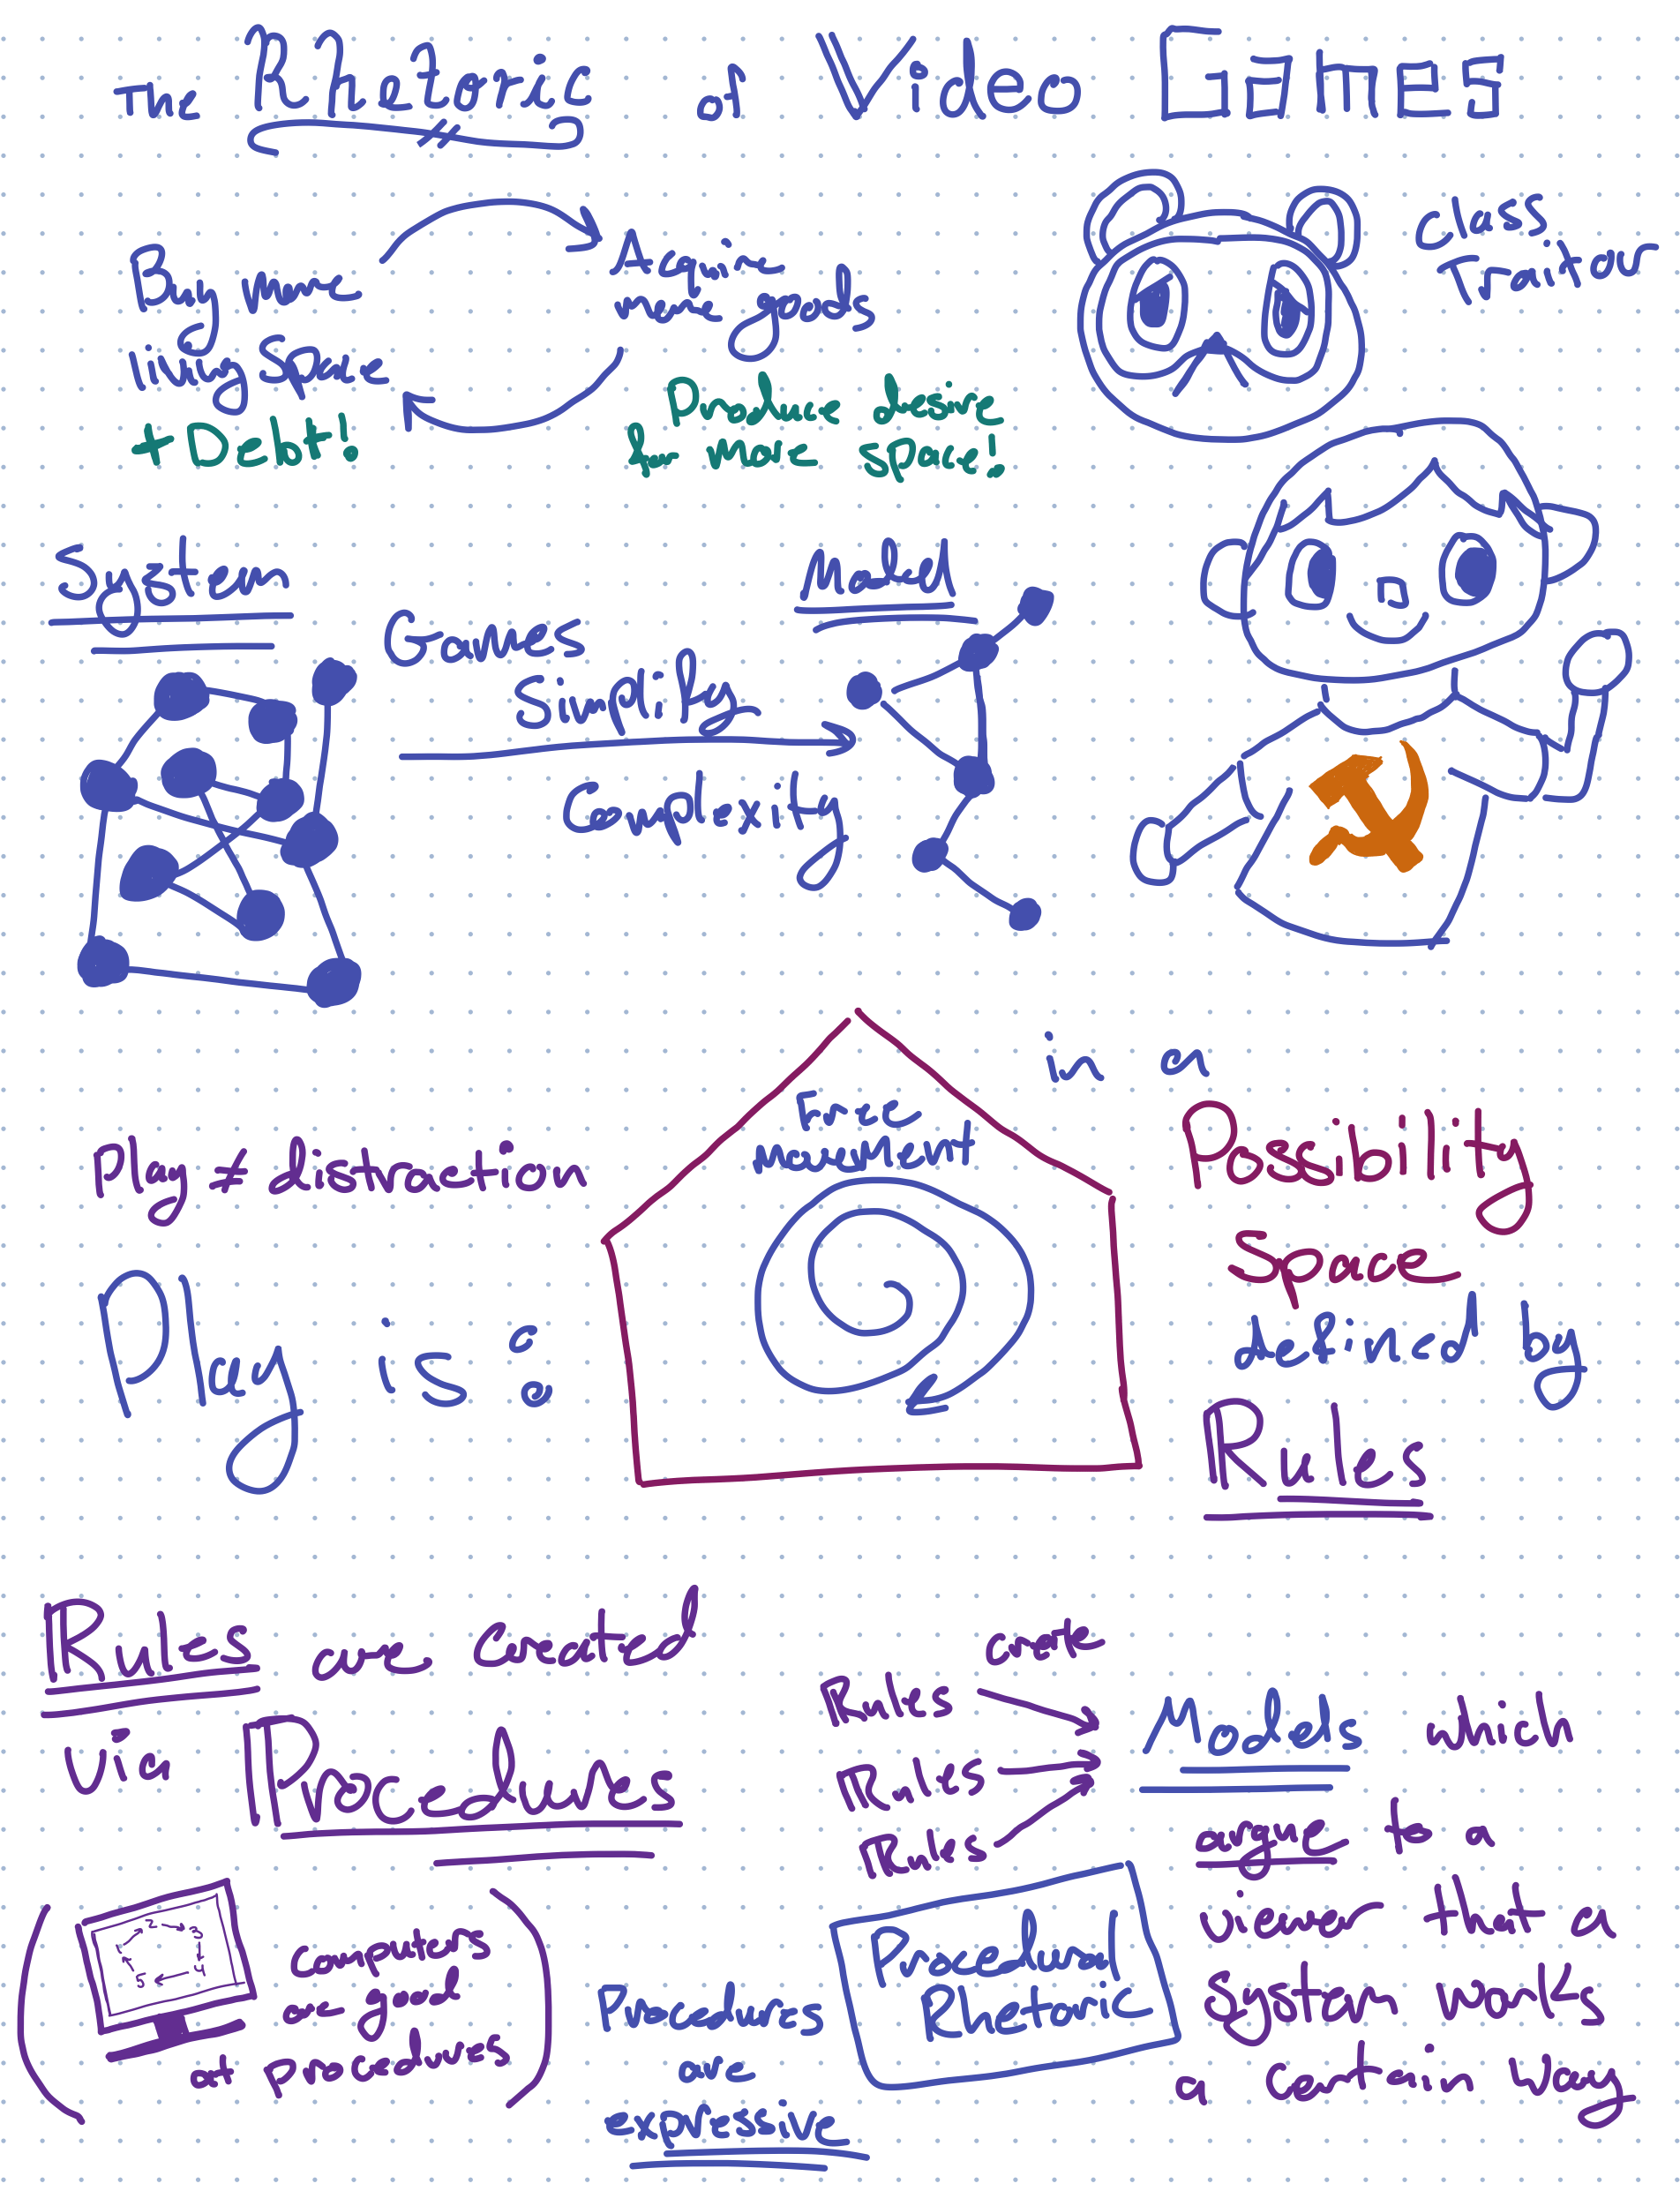 The Rhetoric of Video Games
Buy more
living space
+ Debt!
Acquire
more goods
Produce desire
for more space!
class
Traitour
System
Games
Simplify
Complexity
Model
Play ≠ distraction
Play is:
Free
Movement
in a
Possibility
Space
defined by
Rules
Rules are created
via Procedures
(computers
are good
at procedures)
1 2 3
5 4
Procedures
are
expressive
create
Rules
Rules
Rules
Models which
argue to a
viewer that a
system works
a certain way
Procedural
Rhetoric